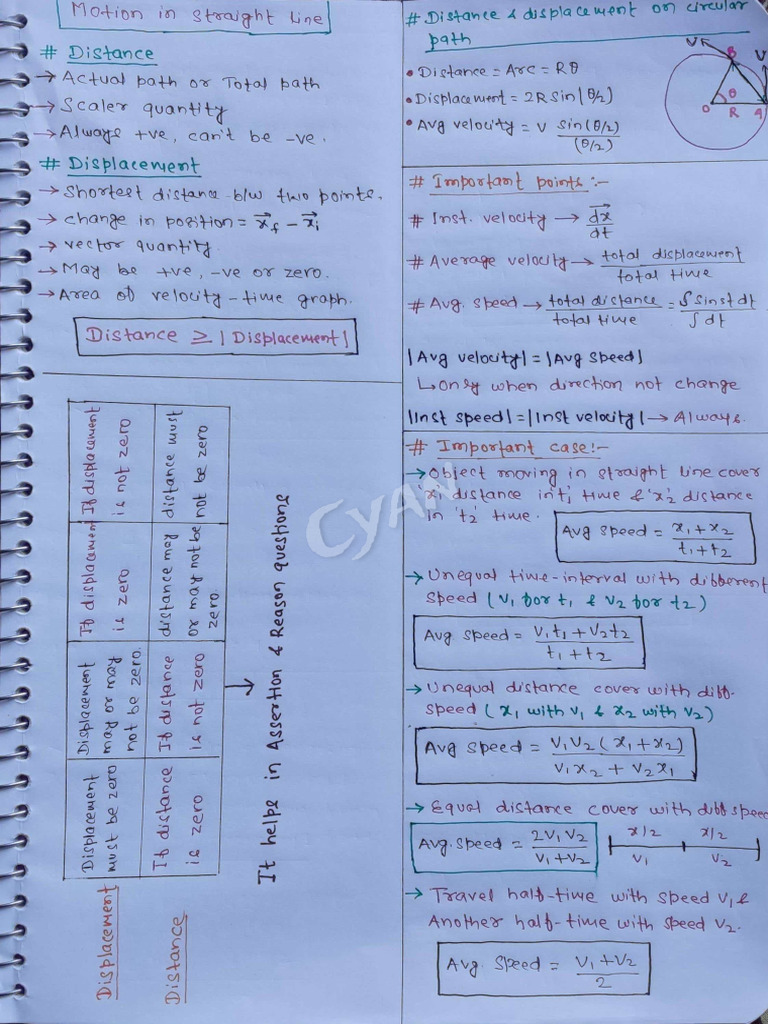 Motion in straight line
# Distance
→ Actual path or Total path
→ Scaler quantity
→ Always +ve, can't be -ve.
# Displacement
→ Shortest distance b/w two points.
→ change in position = x⃗f - x⃗i
→ vector quantity
→ May be +ve, -ve or zero.
→ Area of velocity-time graph.
Distance ≥ |Displacement|
Displacement
Displacement must be zero
Displacement may or may not be zero.
If displacement is zero
If displacement is not zero
Distance
If distance is zero
If distance is not zero
distance may or may not be zero.
distance must not be zero
→ It helps in Assertion & Reason questions
CYAN
# Distance & displacement on circular
path
• Distance = Arc = Rθ
• Displacement = 2R sin(θ/2)
• Avg velocity = v sin(θ/2)/(θ/2)
V B V
θ
O R A
# Important points :-
# Inst. velocity → dx⃗/dt
# Average velocity → total displacement/total time
# Avg. speed → total distance/total time = ∫sinst dt/∫dt
|Avg velocity| = |Avg speed|
↳ only when direction not change
|Inst speed| = |Inst velocity| → Always.
# Important case:-
→ Object moving in straight line cover
'x₁' distance in 't₁' time & 'x₂' distance
in 't₂' time.
Avg speed = x₁+x₂/t₁+t₂
→ Unequal time-interval with different
speed (v₁ for t₁ & v₂ for t₂)
Avg speed = v₁t₁+v₂t₂/t₁+t₂
→ Unequal distance cover with diff.
speed (x₁ with v₁ & x₂ with v₂)
Avg speed = v₁v₂(x₁+x₂)/v₁x₂+v₂x₁
→ Equal distance cover with diff speed
Avg. speed = 2v₁v₂/v₁+v₂
x/2 x/2
v₁ v₂
→ Travel half-time with speed v₁ &
Another half-time with speed v₂.
Avg. speed = v₁+v₂/2